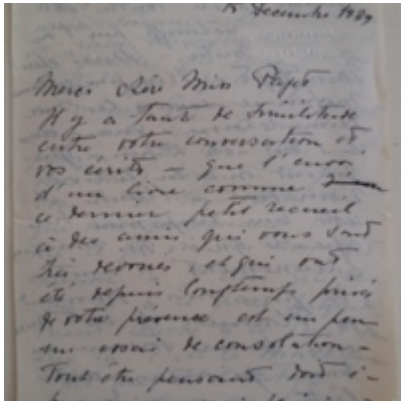 Decembre 1989
Merci chère Miss Paget
Il y a tant de similitude
entre votre conversation et
vos écrits — que l'envoi
d'un livre comme
ce dernier petit recueil
à des amis qui vous sont
très devoués, et qui ont
été depuis longtemps privés
de votre présence est un peu
un essai de consolation –
Tout être pensant doit